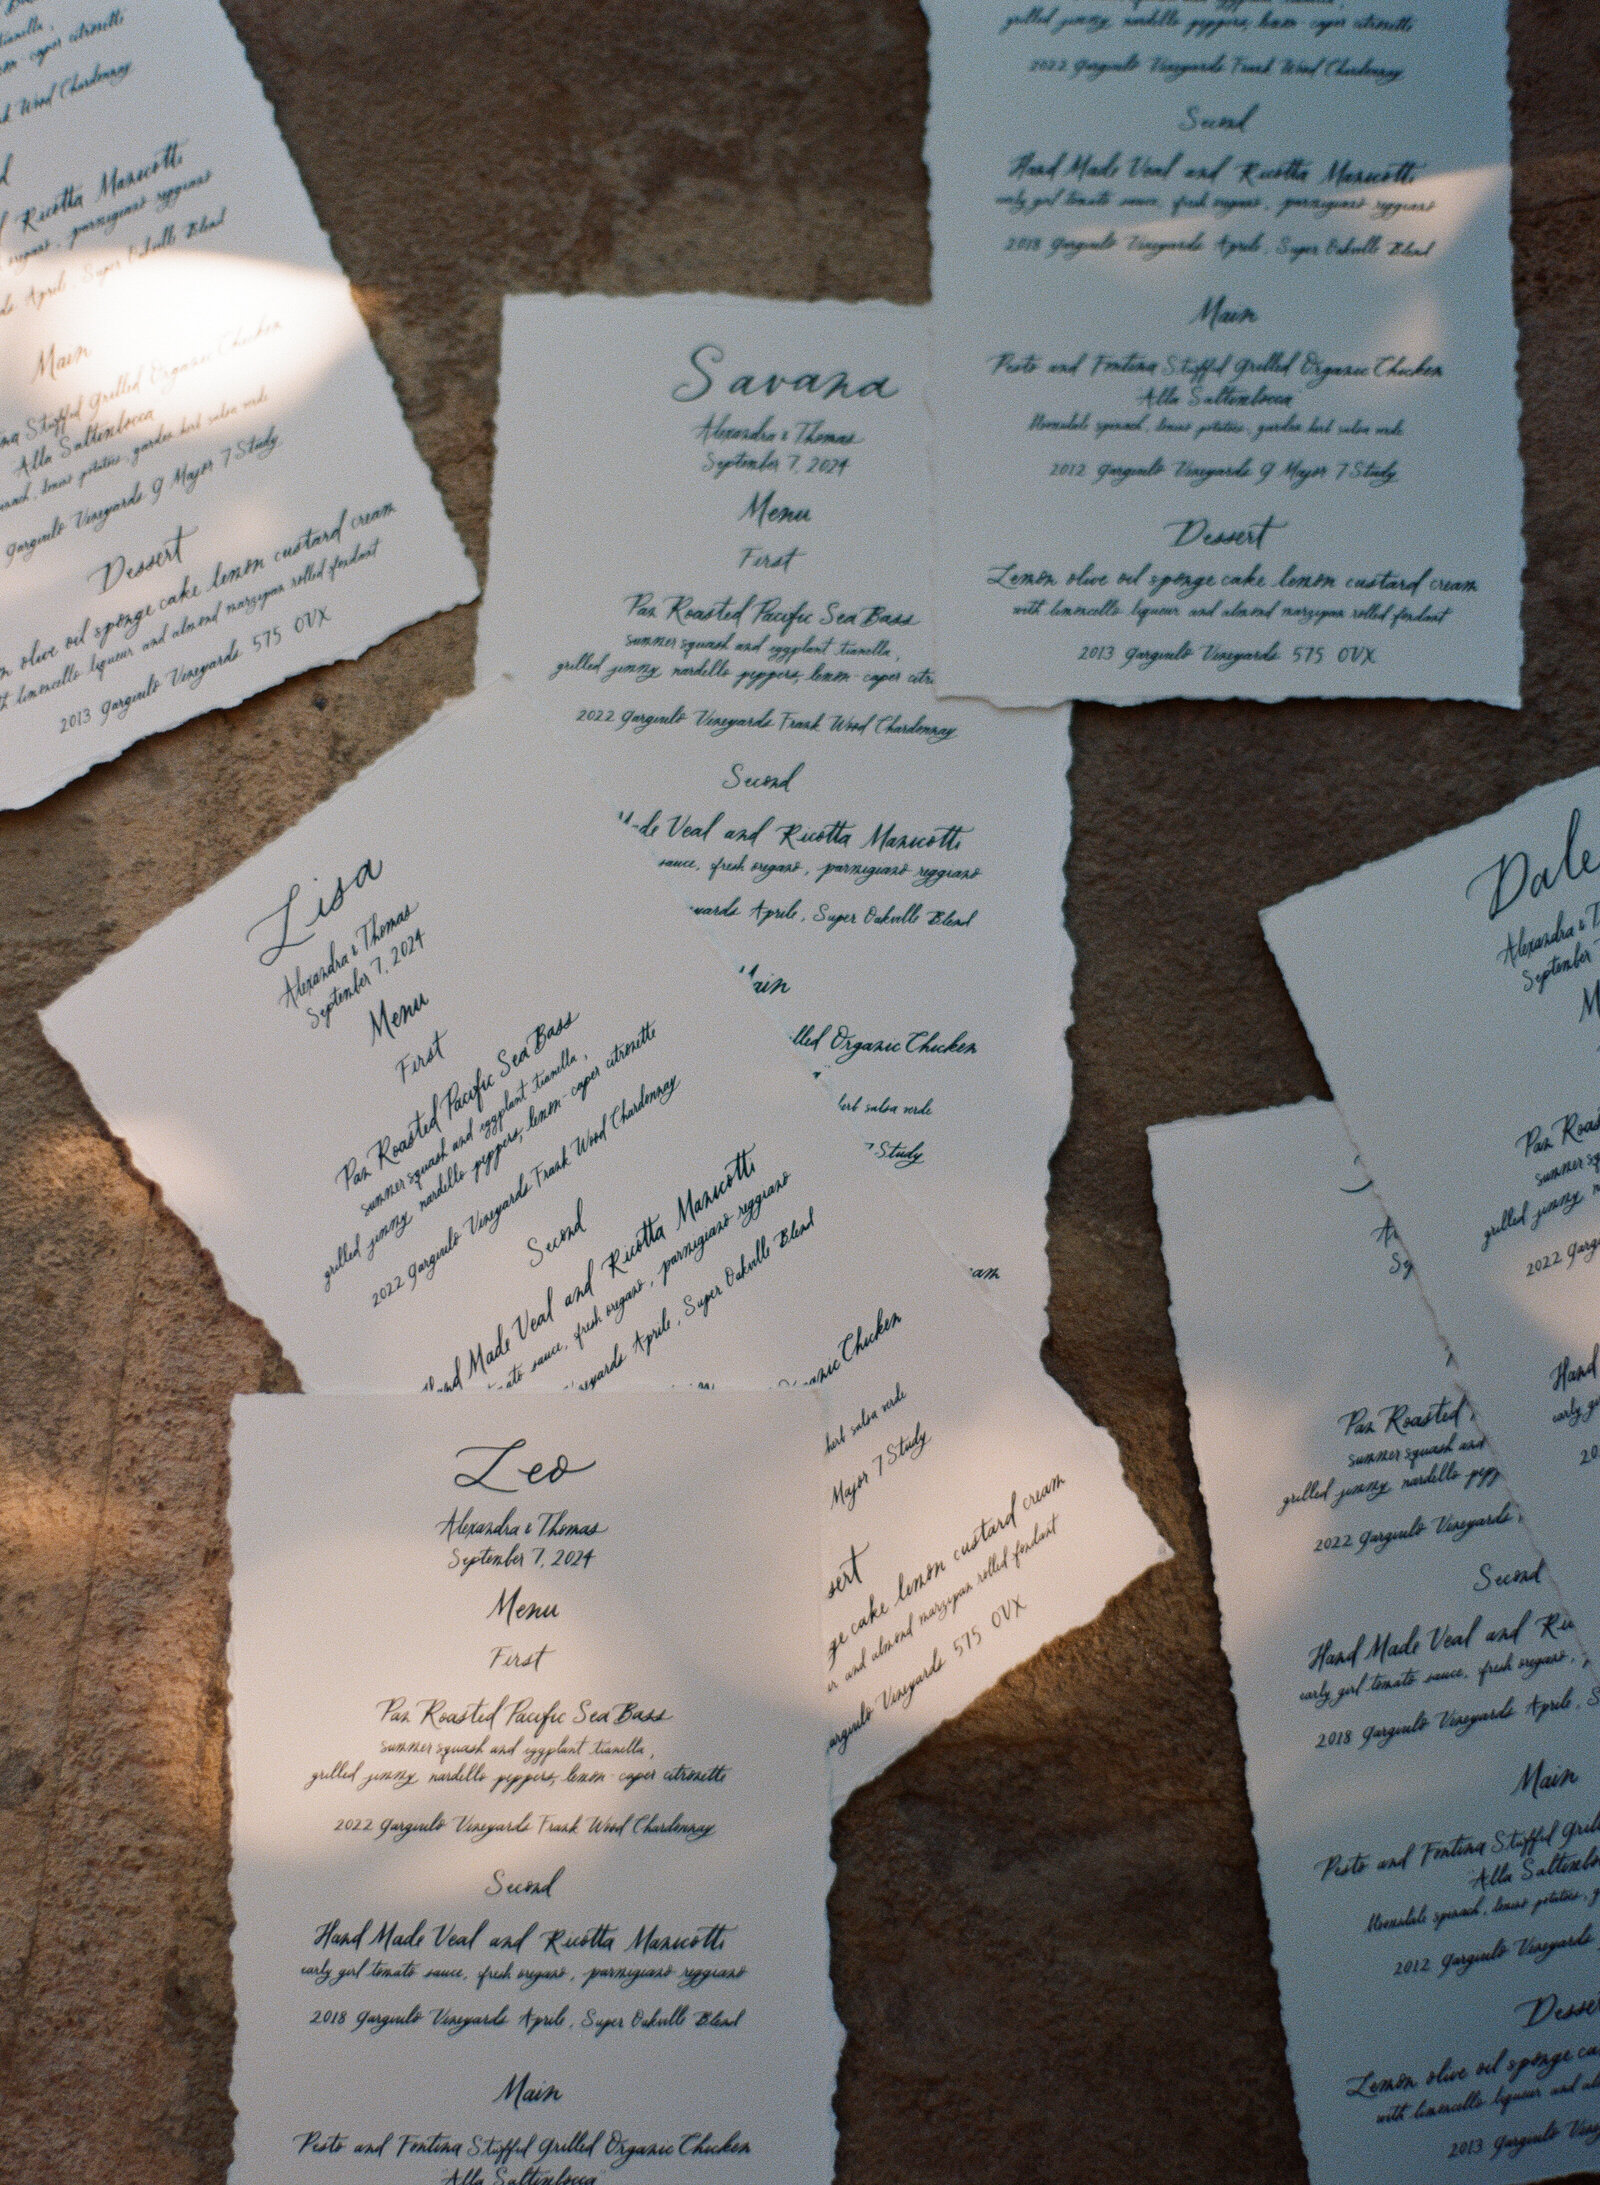 tianella,
lemon-caper citronette
Wood Chardonnay
Ricotta Manicotti
oregano, parmigiano reggiano
Aprile, Super Oakville Blend
Main
Stuffed Grilled Organic Chicken
Alla Saltimbocca
potatoes, garden herb salsa verde
Gargiulo Vineyards G Major 7 Study
Dessert
olive oil sponge cake lemon custard cream
limoncello liqueur and almond marzipan rolled fondant
2013 Gargiulo Vineyards 575 OVX
grilled jimmy nardello peppers, lemon-caper citronette
2022 Gargiulo Vineyards Frank Wood Chardonnay
Second
Hand Made Veal and Ricotta Manicotti
early girl tomato sauce, fresh oregano, parmigiano reggiano
2018 Gargiulo Vineyards Aprile, Super Oakville Blend
Main
Pesto and Fontina Stuffed Grilled Organic Chicken
Alla Saltimbocca
Bloomsdale spinach, potatoes, garden herb salsa verde
2012 Gargiulo Vineyards G Major 7 Study
Dessert
Lemon olive oil sponge cake lemon custard cream
with limoncello liqueur and almond marzipan rolled fondant
2013 Gargiulo Vineyards 575 OVX
Savana
Alexandra & Thomas
September 7, 2024
Menu
First
Pan Roasted Pacific Sea Bass
summer squash and eggplant tianella,
grilled jimmy nardello peppers, lemon-caper citr
2022 Gargiulo Vineyards Frank Wood Chardonnay
Second
Veal and Ricotta Manicotti
sauce, fresh oregano, parmigiano reggiano
yards Aprile, Super Oakville Blend
ain
lled Organic Chicken
herb salsa verde
7 Study
am
Lisa
Alexandra & Thomas
September 7, 2024
Menu
First
Pan Roasted Pacific Sea Bass
summer squash and eggplant tianella,
grilled jimmy nardello peppers, lemon-caper citronette
2022 Gargiulo Vineyards Frank Wood Chardonnay
Second
Hand Made Veal and Ricotta Manicotti
ato sauce, fresh oregano, parmigiano reggiano
neyards Aprile, Super Oakville Blend
anic Chicken
herb salsa verde
Major 7 Study
sert
ge cake lemon custard cream
and almond marzipan rolled fondant
argiulo Vineyards 575 OVX
Leo
Alexandra & Thomas
September 7, 2024
Menu
First
Pan Roasted Pacific Sea Bass
summer squash and eggplant tianella,
grilled jimmy nardello peppers, lemon-caper citronette
2022 Gargiulo Vineyards Frank Wood Chardonnay
Second
Hand Made Veal and Ricotta Manicotti
early girl tomato sauce, fresh oregano, parmigiano reggiano
2018 Gargiulo Vineyards Aprile, Super Oakville Blend
Main
Pesto and Fontina Stuffed Grilled Organic Chicken
Alla Saltimbocca
Dale
Alexandra & T
September
M
Pan Roas
summer sq
grilled jimmy n
2022 Garg
Hand
early g
20
Pan Roasted
summer squash and
grilled jimmy nardello pepp
2022 Gargiulo Vineyards
Second
Hand Made Veal and Ric
early girl tomato sauce, fresh oregano,
2018 Gargiulo Vineyards Aprile, S
Main
Pesto and Fontina Stuffed Gril
Alla Saltimbo
Bloomsdale spinach, potatoes, g
2012 Gargiulo Vineyards
Desser
Lemon olive oil sponge ca
with limoncello liqueur and al
2013 Gargiulo Vin